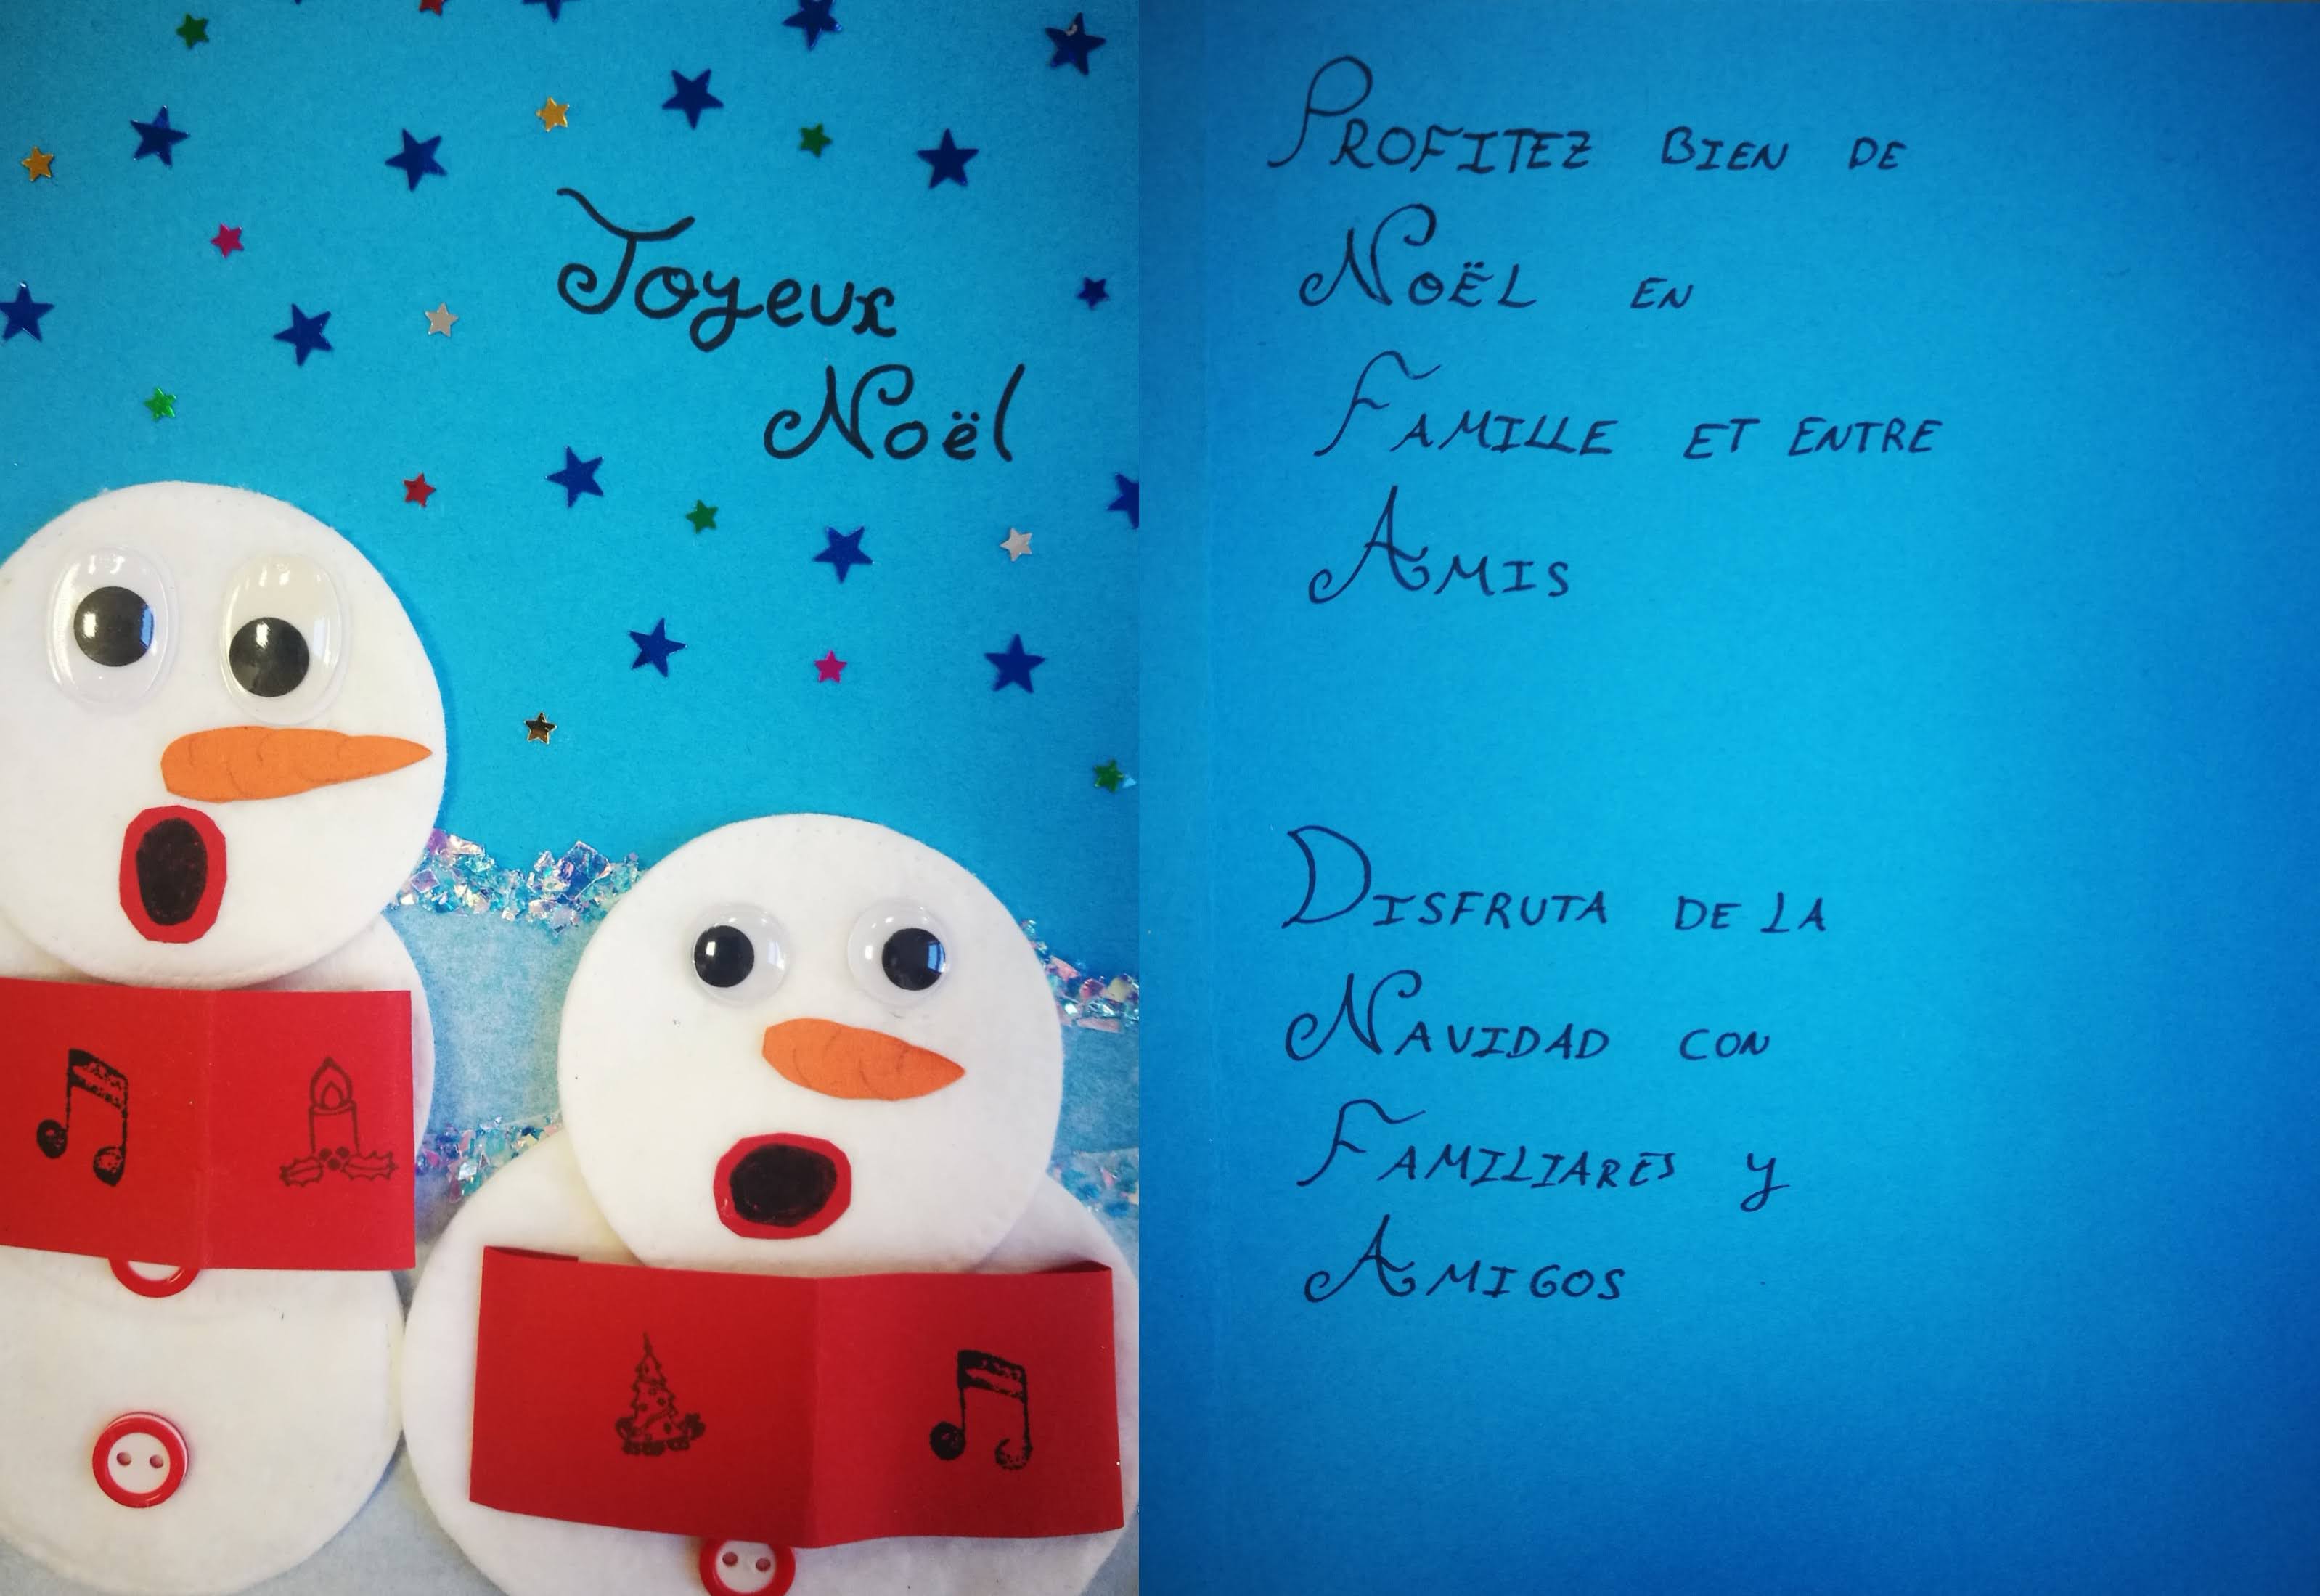 Joyeux
Noël
PROFITEZ BIEN DE
NOËL EN
FAMILLE ET ENTRE
AMIS
DISFRUTA DE LA
NAVIDAD CON
FAMILIARES y
AMIGOS